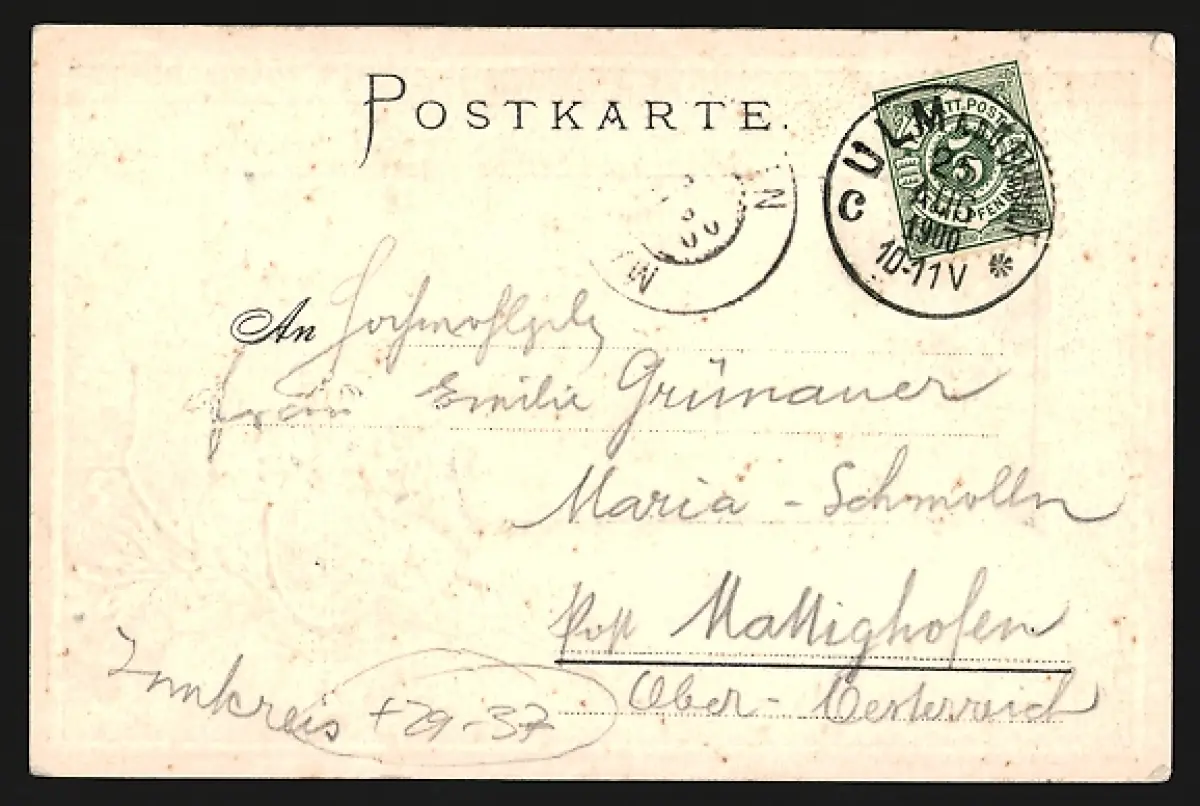 POSTKARTE.
ULM
C
25
AUG
1900
10-11V
5
PFENNIG
00
An Hochwohlgeb
Frau Emilie Grünauer
Maria - Schmolln
Post Mattighofen
Ober - Oesterreich
Innkreis +29-37